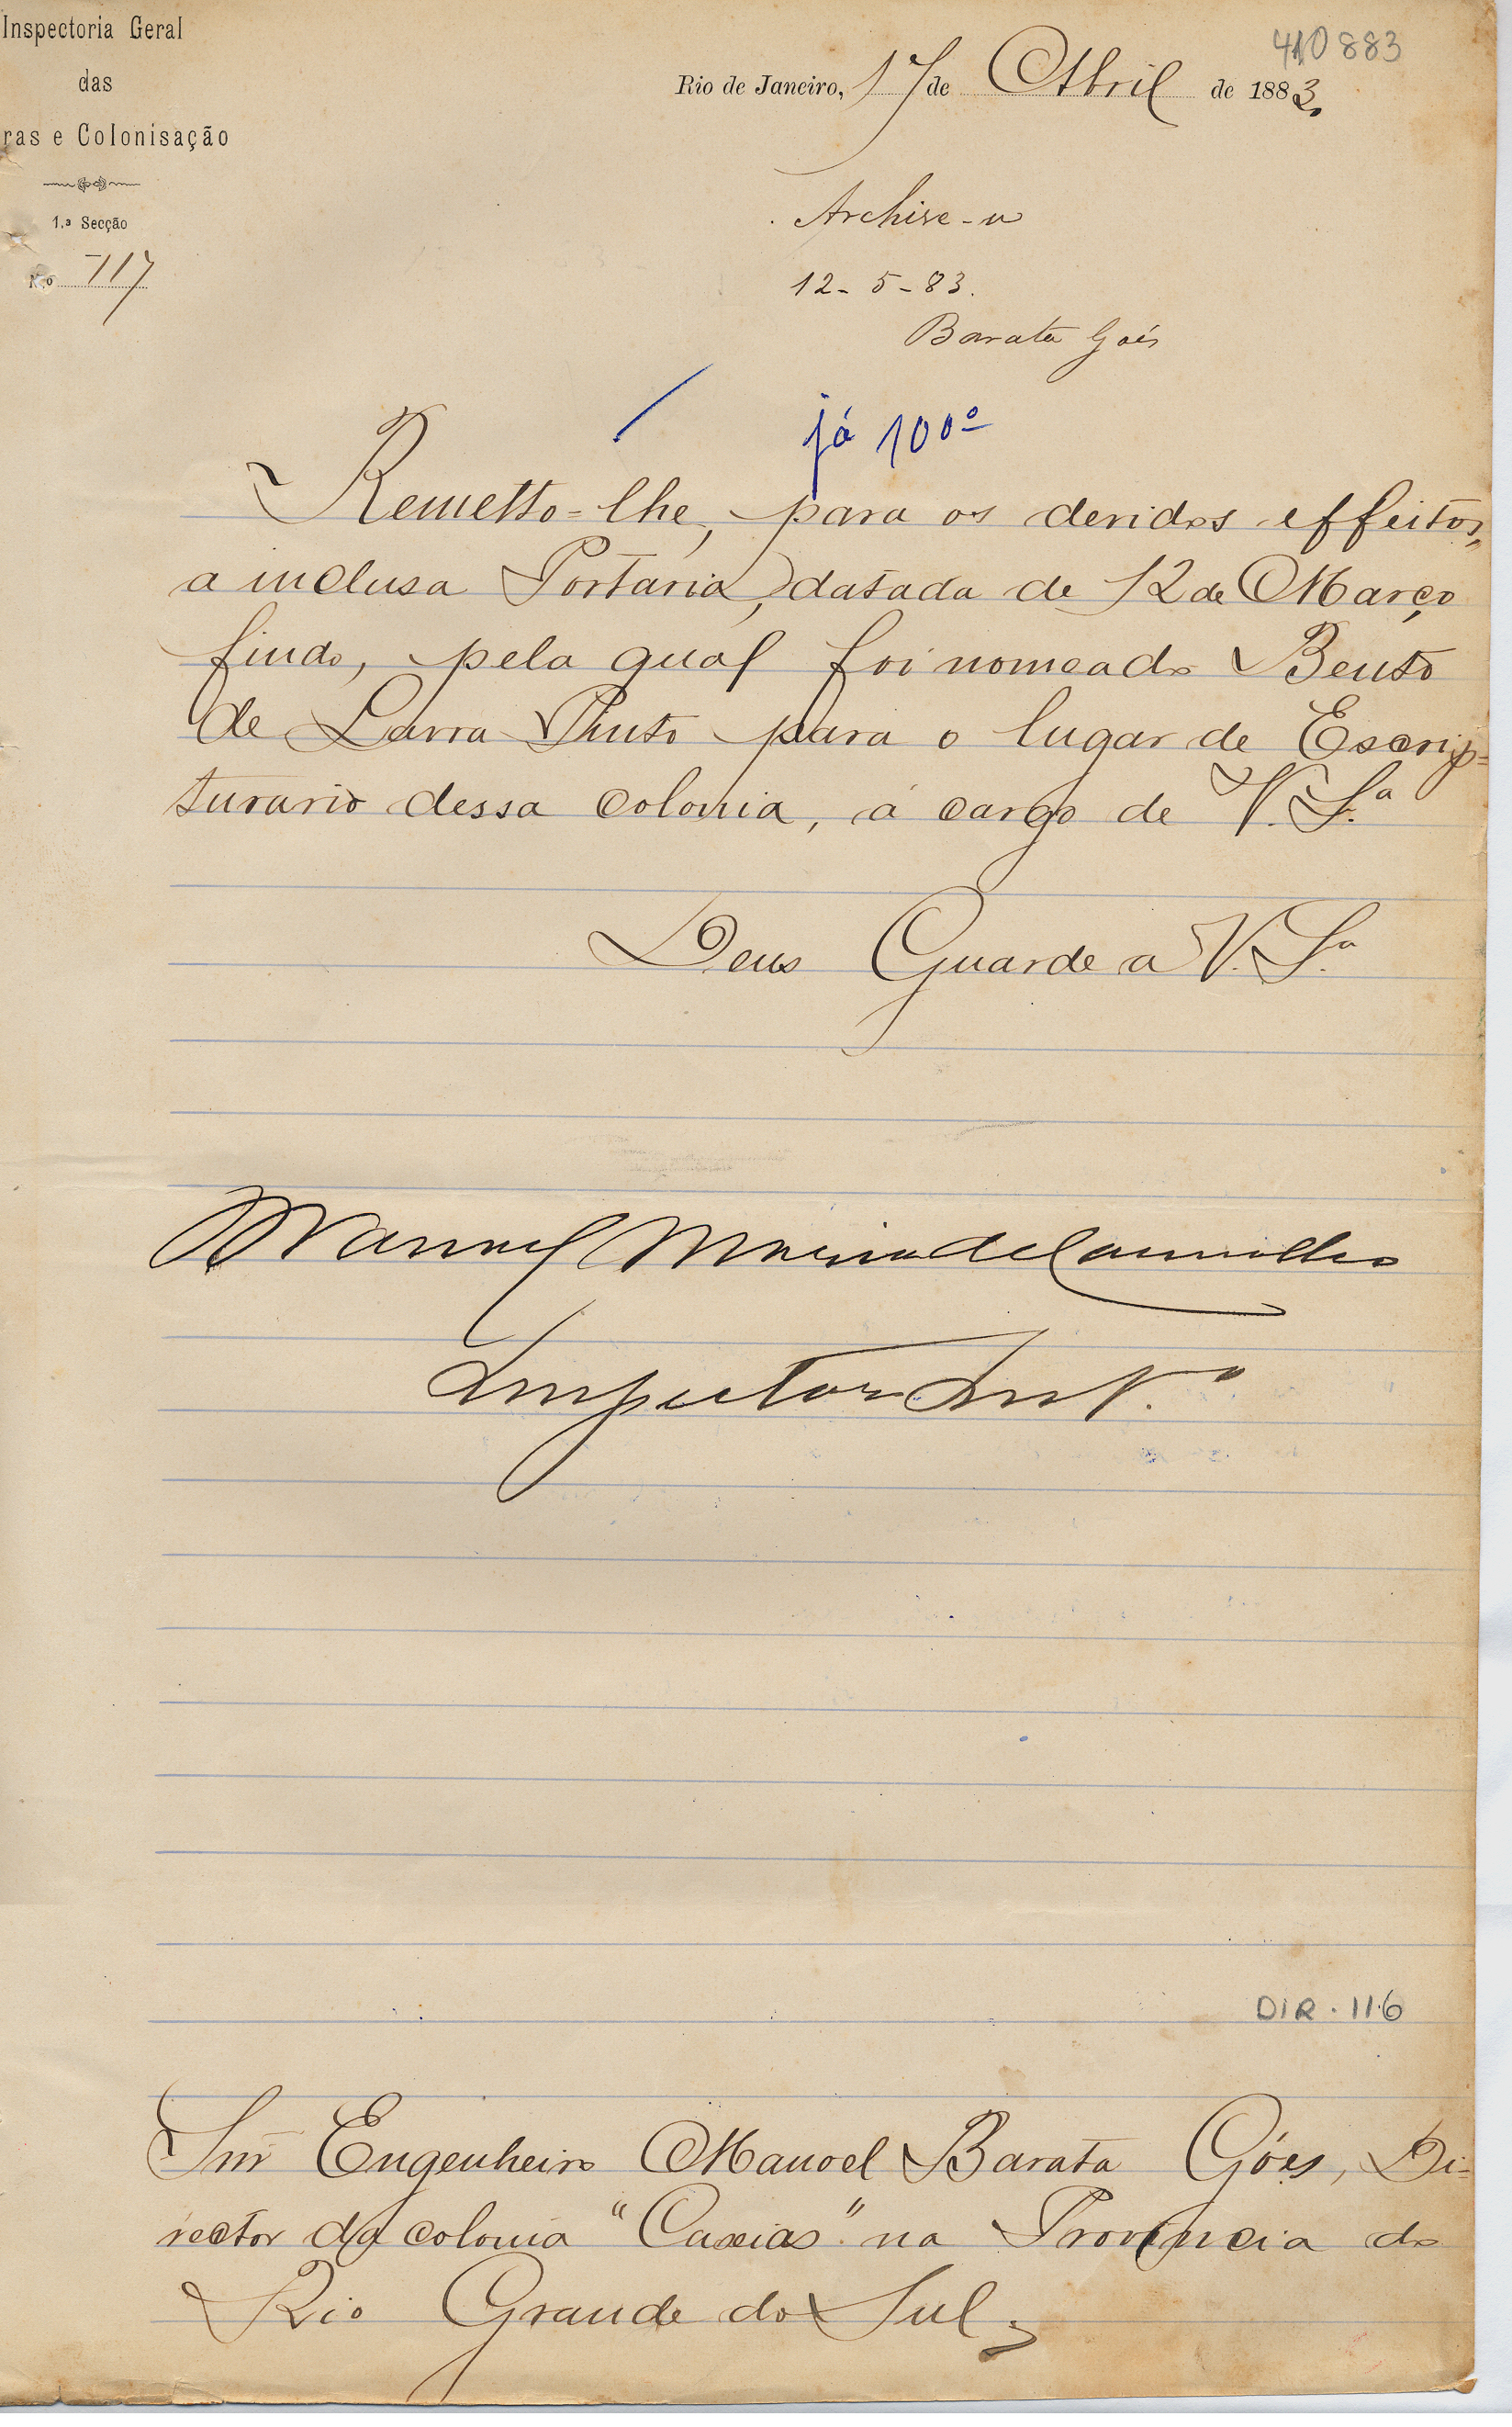 Inspectoria Geral
das
ras e Colonisação
1.ª Secção
N.o 717
410883
Rio de Janeiro, 17 de Abril de 1883.
Archive-se
12-5-83.
Barata Goés
já 100º
Remetto-lhe, para os devidos effeitos,
a inclusa Portaria, datada de 12 de Março
findo, pela qual foi nomeado Bento
de Lavra Pinto para o lugar de Escrip=
turario dessa colonia, á cargo de V. S.ª
Deus Guarde a V. S.ª
Manoel Maria de Carvalho
Inspector Int.º
DIR. 116
Snr Engenheiro Manoel Barata Góes, Di=
rector da colonia "Caxias" na Provincia do
Rio Grande do Sul